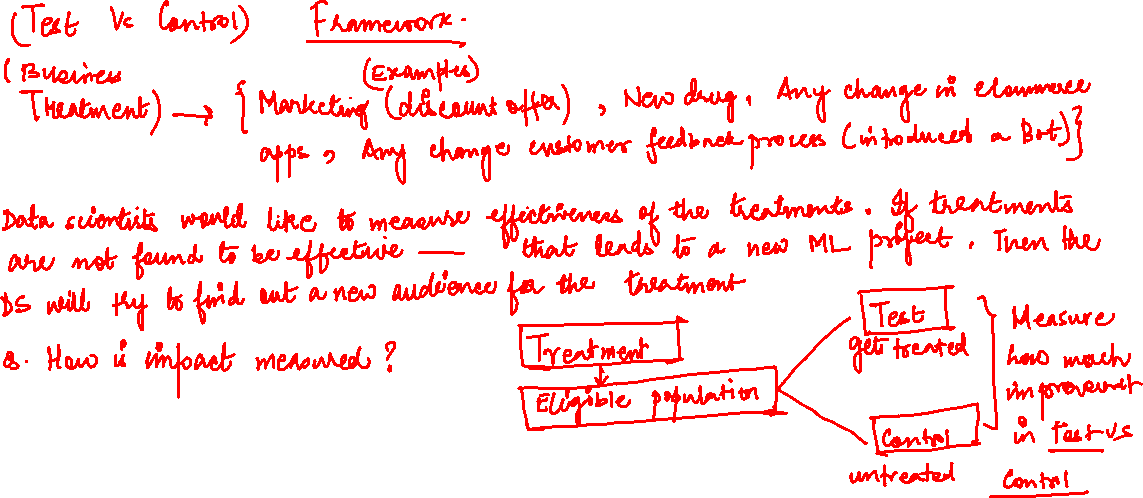 (Test Vs Control) Framework.
(Business (Examples)
Treatment) → { Marketing (discount offer), New drug, Any change in ecommerce
apps, Any change customer feedback process (introduced a Bot)}
Data scientists would like to measure effectiveness of the treatments. If treatments
are not found to be effective — that leads to a new ML project. Then the
DS will try to find out a new audience for the treatment
Q. How is impact measured?
Treatment
Eligible population
Test
gets treated
Control
untreated
Measure
how much
improvement
in Test vs
Control